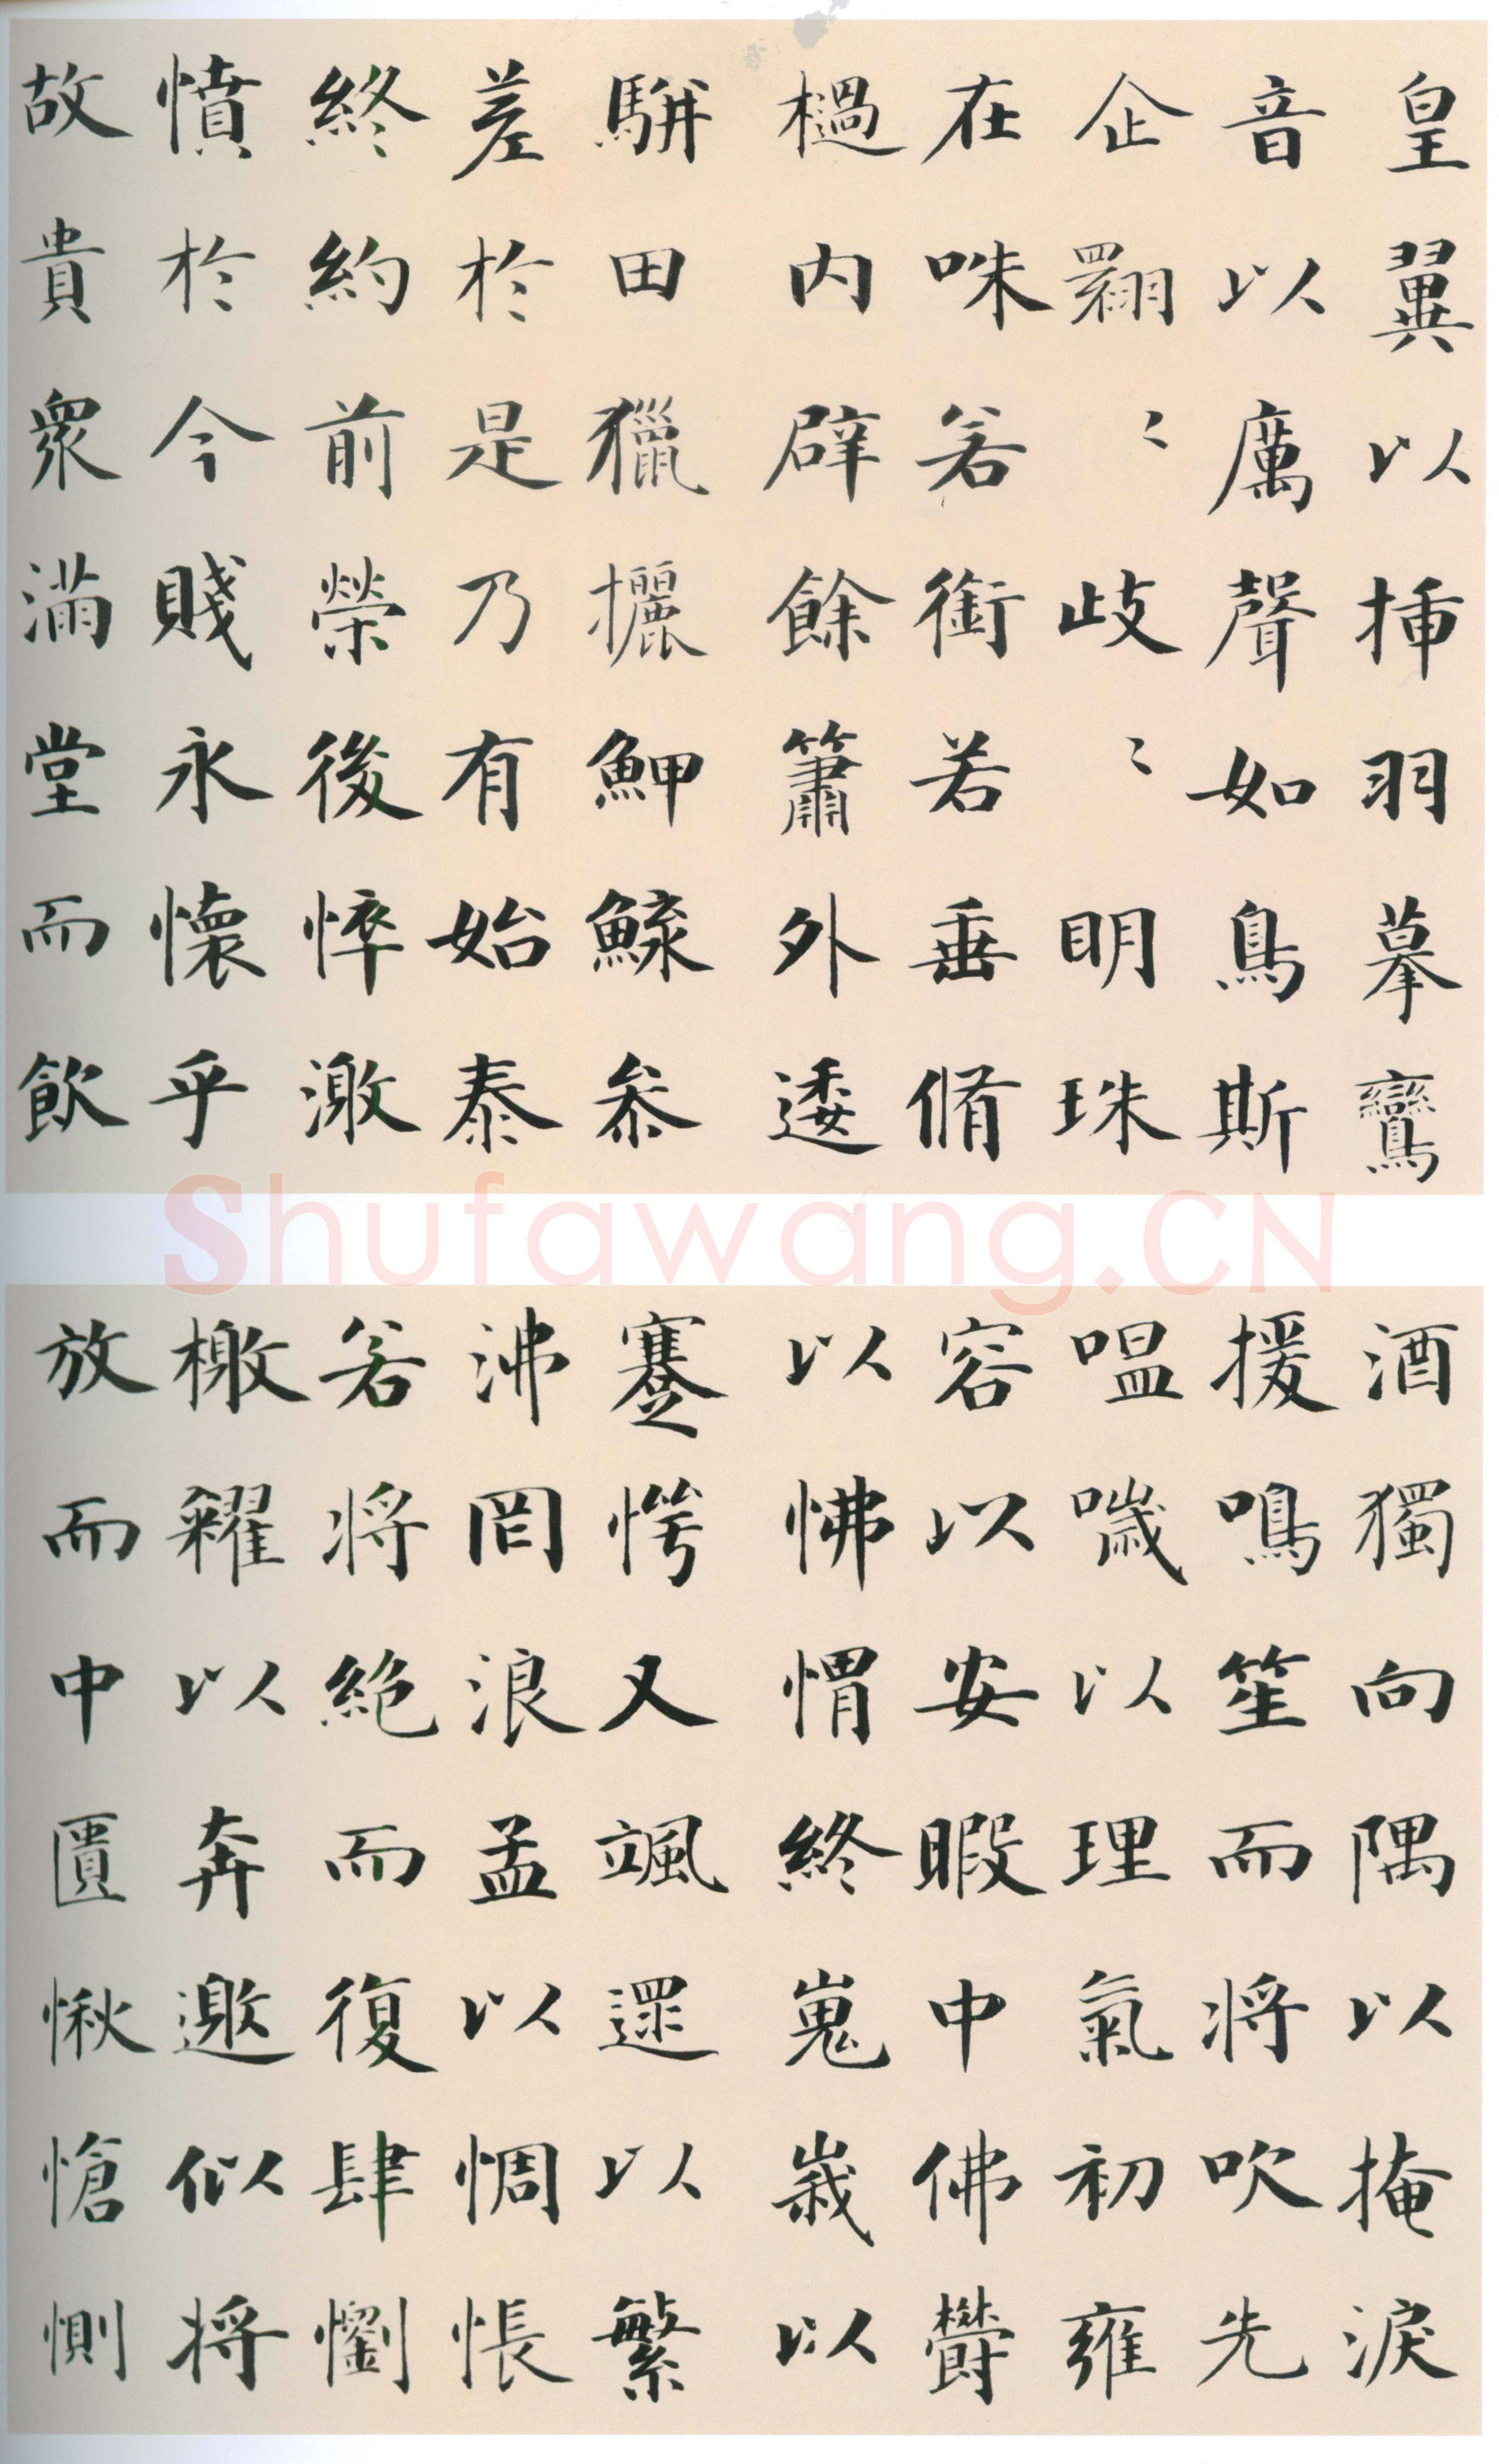 皇翼以插羽摹鸞
音以厲聲如鳥斯
企翾〻歧〻明珠
在咮若銜若垂脩
檛内辟餘簫外逶
駢田獵攦魻参
差於是乃有始泰
終約前榮後悴激
憤於今賤永懷乎
故貴衆滿堂而飲
Shufawang.CN
酒獨向隅以掩淚
援鳴笙而将吹先
嗢噦以理氣初雍
容以安暇中佛欝
以怫愲終嵬峩以
蹇愕又颯遝以繁
沸罔浪孟以惆悵
若将絶而復肆懰
檄糴以奔邀似将
放而中匱愀愴惻